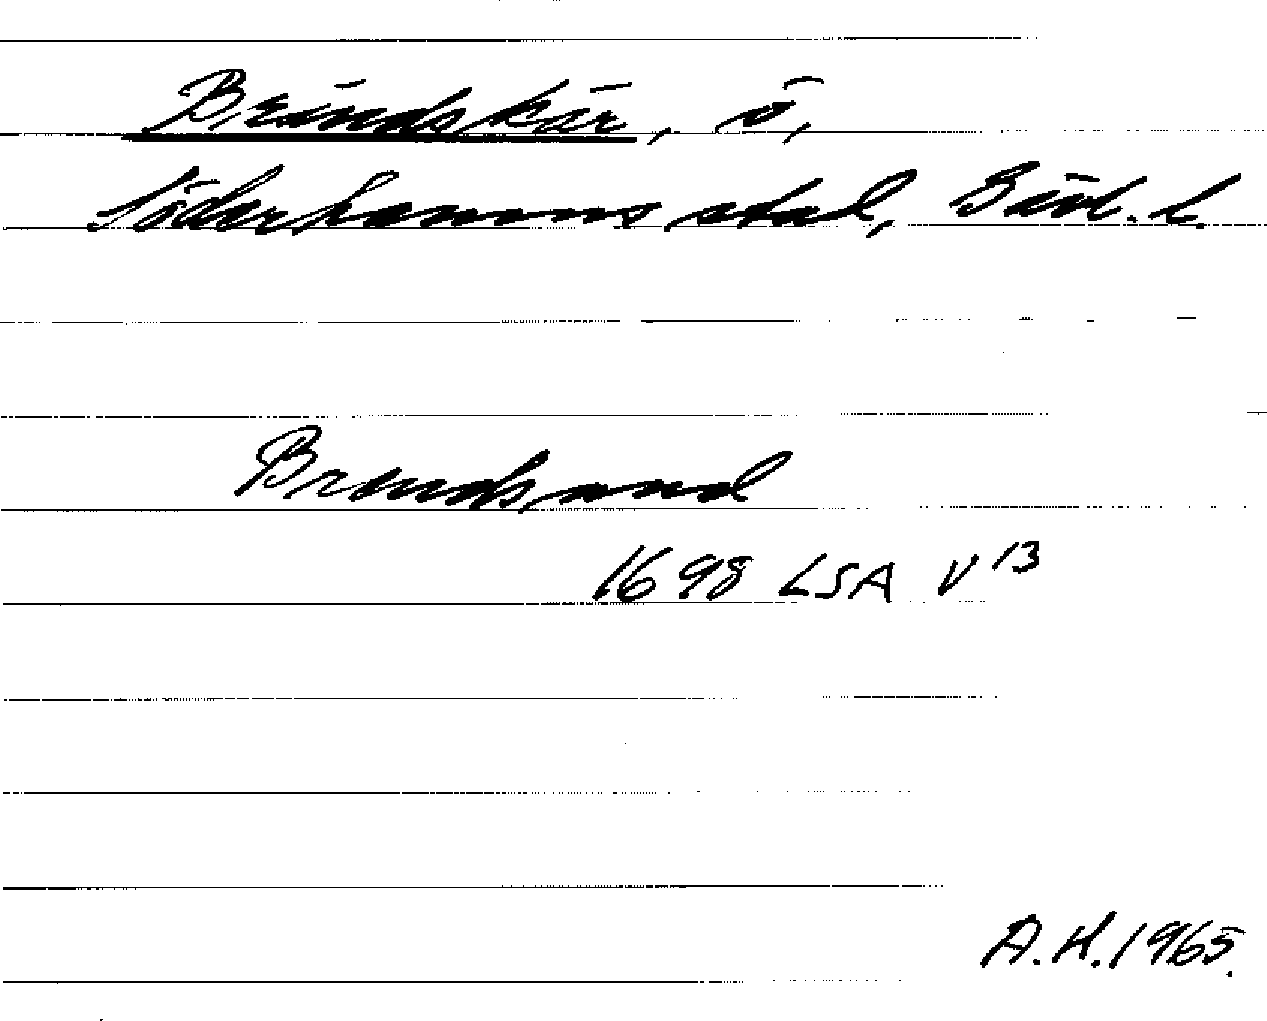 Brändskär, ö,
Söderhamns stad, Gävl. l.
Brendsund
1698 LSA V 13
A.H. 1965.